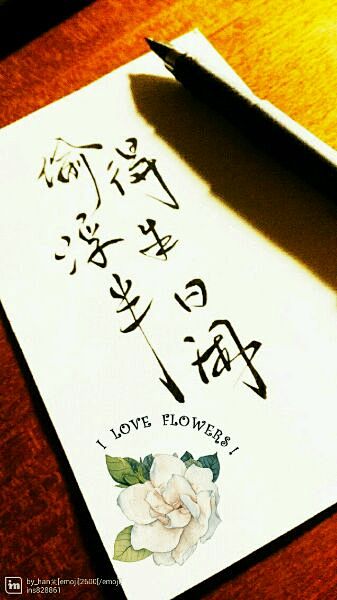 偷得
浮生
半日
闲
I LOVE FLOWERS!
in
[emoji]2600[/emoji]
ins828861